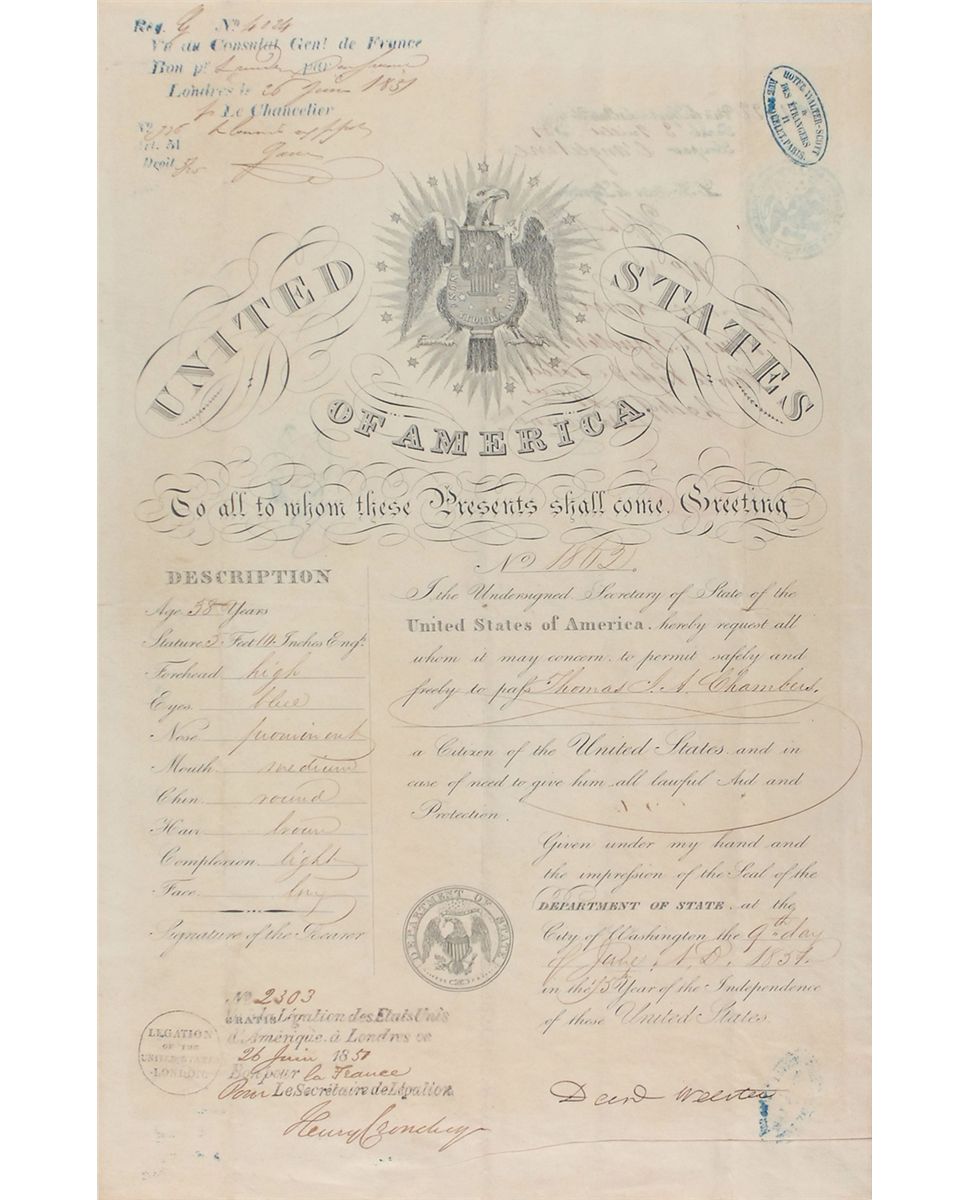 Reg. G No 4024
Vu au Consulat Genl. de France
Bon pr. Londres
Londres le 26 Juin 1851
pr Le Chancelier
No 726
Art. 51
Droit
HOTEL WALTER-SCOTT
& DES ÉTRANGERS
11
PARIS.
UNITED STATES
OF AMERICA.
To all to whom these Presents shall come. Greeting
No 1862.
DESCRIPTION
Age 58 Years
Stature 5 Feet 10 Inches Engs.
Forehead high
Eyes blue
Nose prominent
Mouth medium
Chin round
Hair brown
Complexion light
Face
Signature of the Bearer
I the Undersigned Secretary of State of the
United States of America, hereby request all
whom it may concern, to permit safely and
freely to pass Thomas J. A. Chambers.
a Citizen of the United States and in
case of need to give him all lawful Aid and
Protection.
Given under my hand and
the impression of the Seal of the
DEPARTMENT OF STATE, at the
City of Washington the 9th day
of June, A.D. 1851.
in the 75 Year of the Independence
of these United States.
DEPARTMENT OF STATE
No 2303
GRATIS
Légation des Etats Unis
d'Amérique à Londres ce
26 Juin 1851
Bon pour la France
Pour Le Secrétaire de Légation
LEGATION
OF THE
UNITED STATES
LONDON
Danl Webster